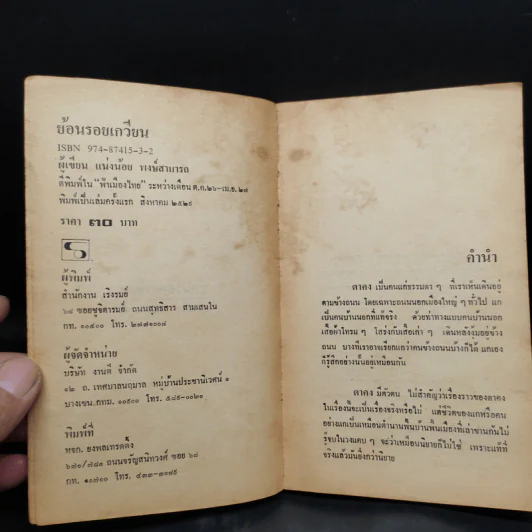 ย้อนรอยเกวียน
ISBN 974-87415-3-2
ผู้เขียน แน่งน้อย พงษ์สามารถ
ตีพิมพ์ใน "ฟ้าเมืองไทย" ระหว่างเดือน ต.ค.๒๖-เม.ย. ๒๗
พิมพ์เป็นเล่มครั้งแรก สิงหาคม ๒๕๒๙
ราคา ๓๐ บาท
ผู้พิมพ์
สำนักงาน เริงรมย์
๖๙ ซอยชูจิตารมย์ ถนนสุทธิสาร สามเสนใน
กท. ๑๐๔๐๐ โทร.
ผู้จัดจำหน่าย
บริษัท งานดี จำกัด
๑๒ ถ. เทศบาลนฤมาล หมู่บ้านประชานิเวศน์ ๑
บางเขน.กทม. ๑๐๙๐๐ โทร.
พิมพ์ที่
หจก. ยงพลเทรดดิ้ง
ถนนจรัญสนิทวงศ์ ซอย ๖๘
กท. ๑๐๗๐๐ โทร.
คำนำ
ตาคง เป็นคนแก่ธรรมดา ๆ ที่เราเห็นเดินอยู่
ตามข้างถนน โดยเฉพาะถนนนอกเมืองใหญ่ ๆ ทั่วไป แก
เป็นคนบ้านนอกที่แท้จริง ด้วยท่าทางแบบคนบ้านนอก
เสื้อผ้าโทรม ๆ โสร่งกับเสื้อเก่า ๆ เดินหลังงุ้มอยู่ข้าง
ถนน บางทีเราอาจเรียกแกว่าคนข้างถนนบ้างก็ได้ แกเอง
ก็รู้สึกอย่างนั้นอยู่เหมือนกัน
ตาคง มีตัวตน ไม่สำคัญว่าเรื่องราวของตาคง
ในเรื่องนี้จะเป็นเรื่องจริงหรือไม่ แต่ชีวิตของแกหรือคน
อย่างแกเป็นเหมือนตำนานพื้นบ้านพื้นเมืองที่เล่าขานกันไม่
รู้จบในวงแคบ ๆ จะว่าเหมือนนิยายก็ไม่ใช่ เพราะแท้ที่
จริงแล้วมันยิ่งกว่านิยาย